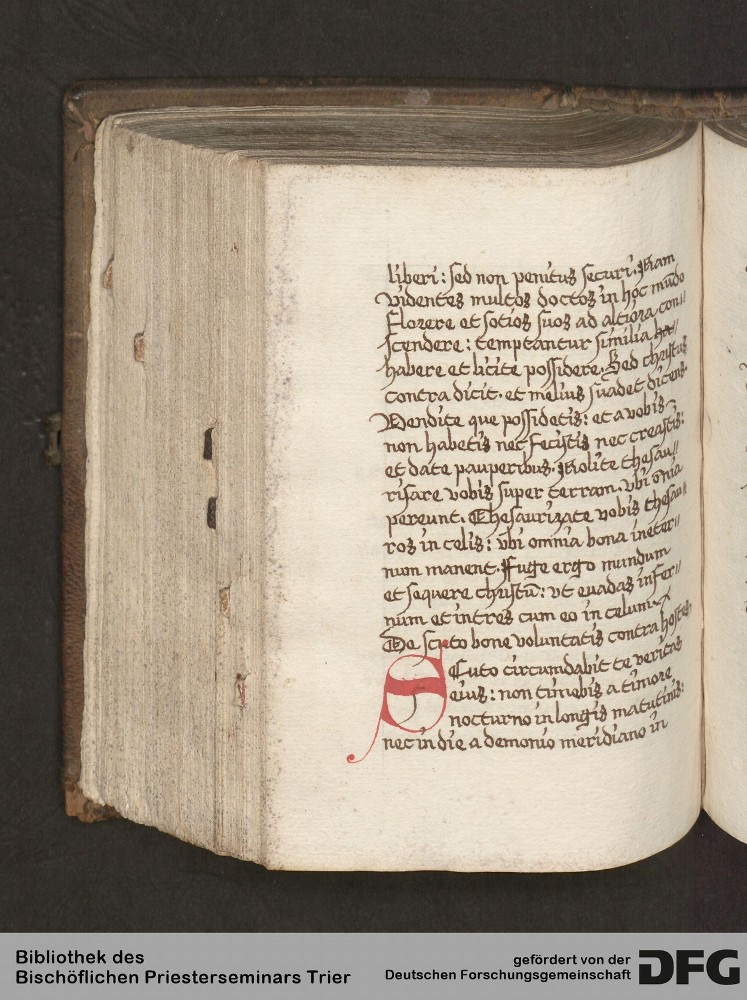 liberi: sed non penitus securi. Nam
videntes multos doctos in hoc mūdo
florere et sotios suos ad altiora con//
scendere: temptantur similia ha//
habere et licite possidere. Sed christus
contra dicit. et melius suadet dicens.
Vendite que possidetis: et a vobis
non habetis nec fecistis nec creastis:
et date pauperibus. Nolite thesau//
risare vobis super terram. vbi oīa
pereunt. Thesaurizate vobis thesau//
ros in celis: vbi omnia bona in eter//
num manent. Fuge ergo mundum
et sequere christū: vt euadas infer//
num et intres cum eo in celum.
De scuto bone voluntatis contra hostes.
SCuto circumdabit te veritas
eius: non timebis a timore
nocturno in longis matutinis:
nec in die a demonio meridiano in
Bibliothek des
Bischöflichen Priesterseminars Trier
gefördert von der
Deutschen Forschungsgemeinschaft
DFG